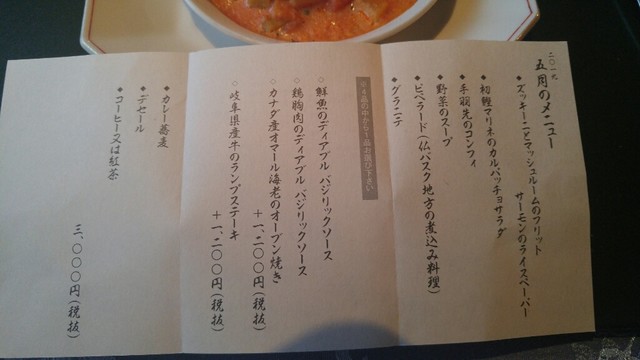 二〇一九
五月のメニュー
◆ズッキーニとマッシュルームのフリット
サーモンのライスペーパー
◆初鰹マリネのカルパッチョサラダ
◆手羽先のコンフィ
◆野菜のスープ
◆ピペラード(仏バスク地方の煮込み料理)
◆グラニテ
※4品の中から1品お選び下さい
◇鮮魚のディアブル バジリックソース
◇鶏胸肉のディアブル バジリックソース
◇カナダ産オマール海老のオーブン焼き
+一、二〇〇円(税抜)
◇岐阜県産牛のランプステーキ
+一、二〇〇円(税抜)
◆カレー蕎麦
◆デセール
◆コーヒー又は紅茶
三、〇〇〇円(税抜)